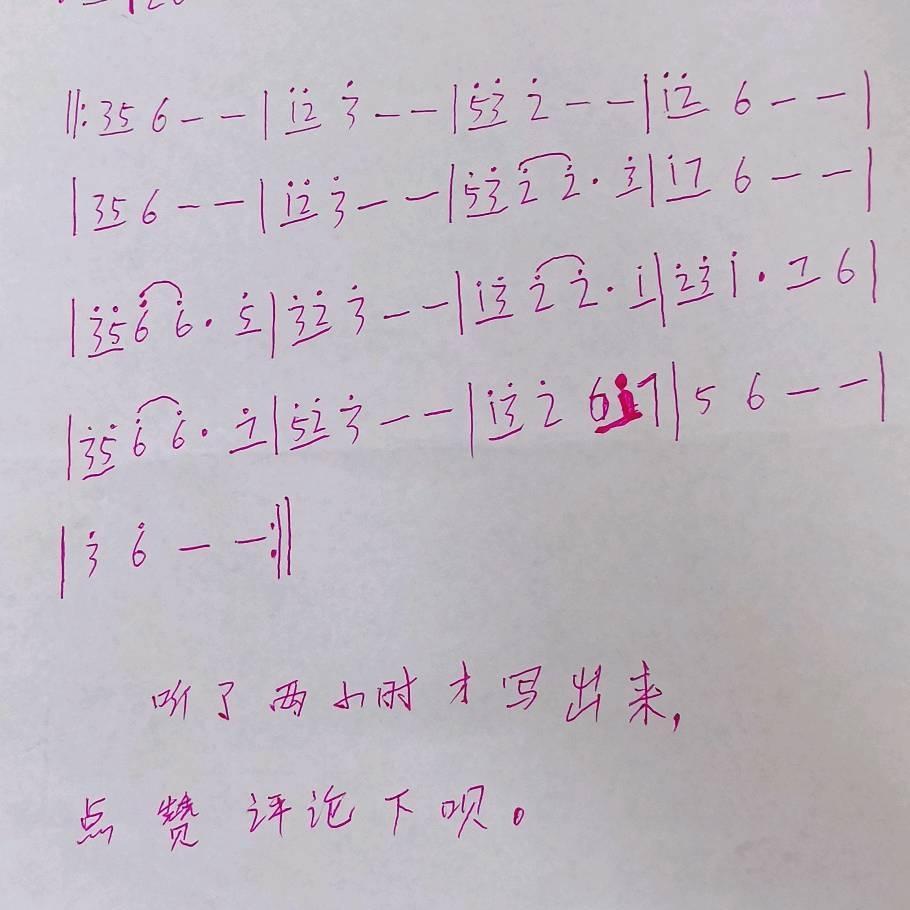 ‖: 35 6 - - | i̇2̇ 3̇ - - | 5̇3̇ 2̇ - - | i̇2̇ 6 - - |
| 35 6 - - | i̇2̇ 3̇ - - | 5̇3̇ 2̇ 2̇ · 3̇ | i̇7 6 - - |
| 3̇5̇ 6̇ 6̇ · 5̇ | 3̇2̇ 3̇ - - | i̇3̇ 2̇ 2̇ · i̇ | 2̇3̇ i̇ · 7 6 |
| 3̇5̇ 6̇ 6̇ · 7̇ | 5̇2̇ 3̇ - - | i̇3̇ 2̇ 6i̇7 | 5 6 - - |
| 3̇ 6̇ - - :‖
听了两小时才写出来,
点赞评论下呗。